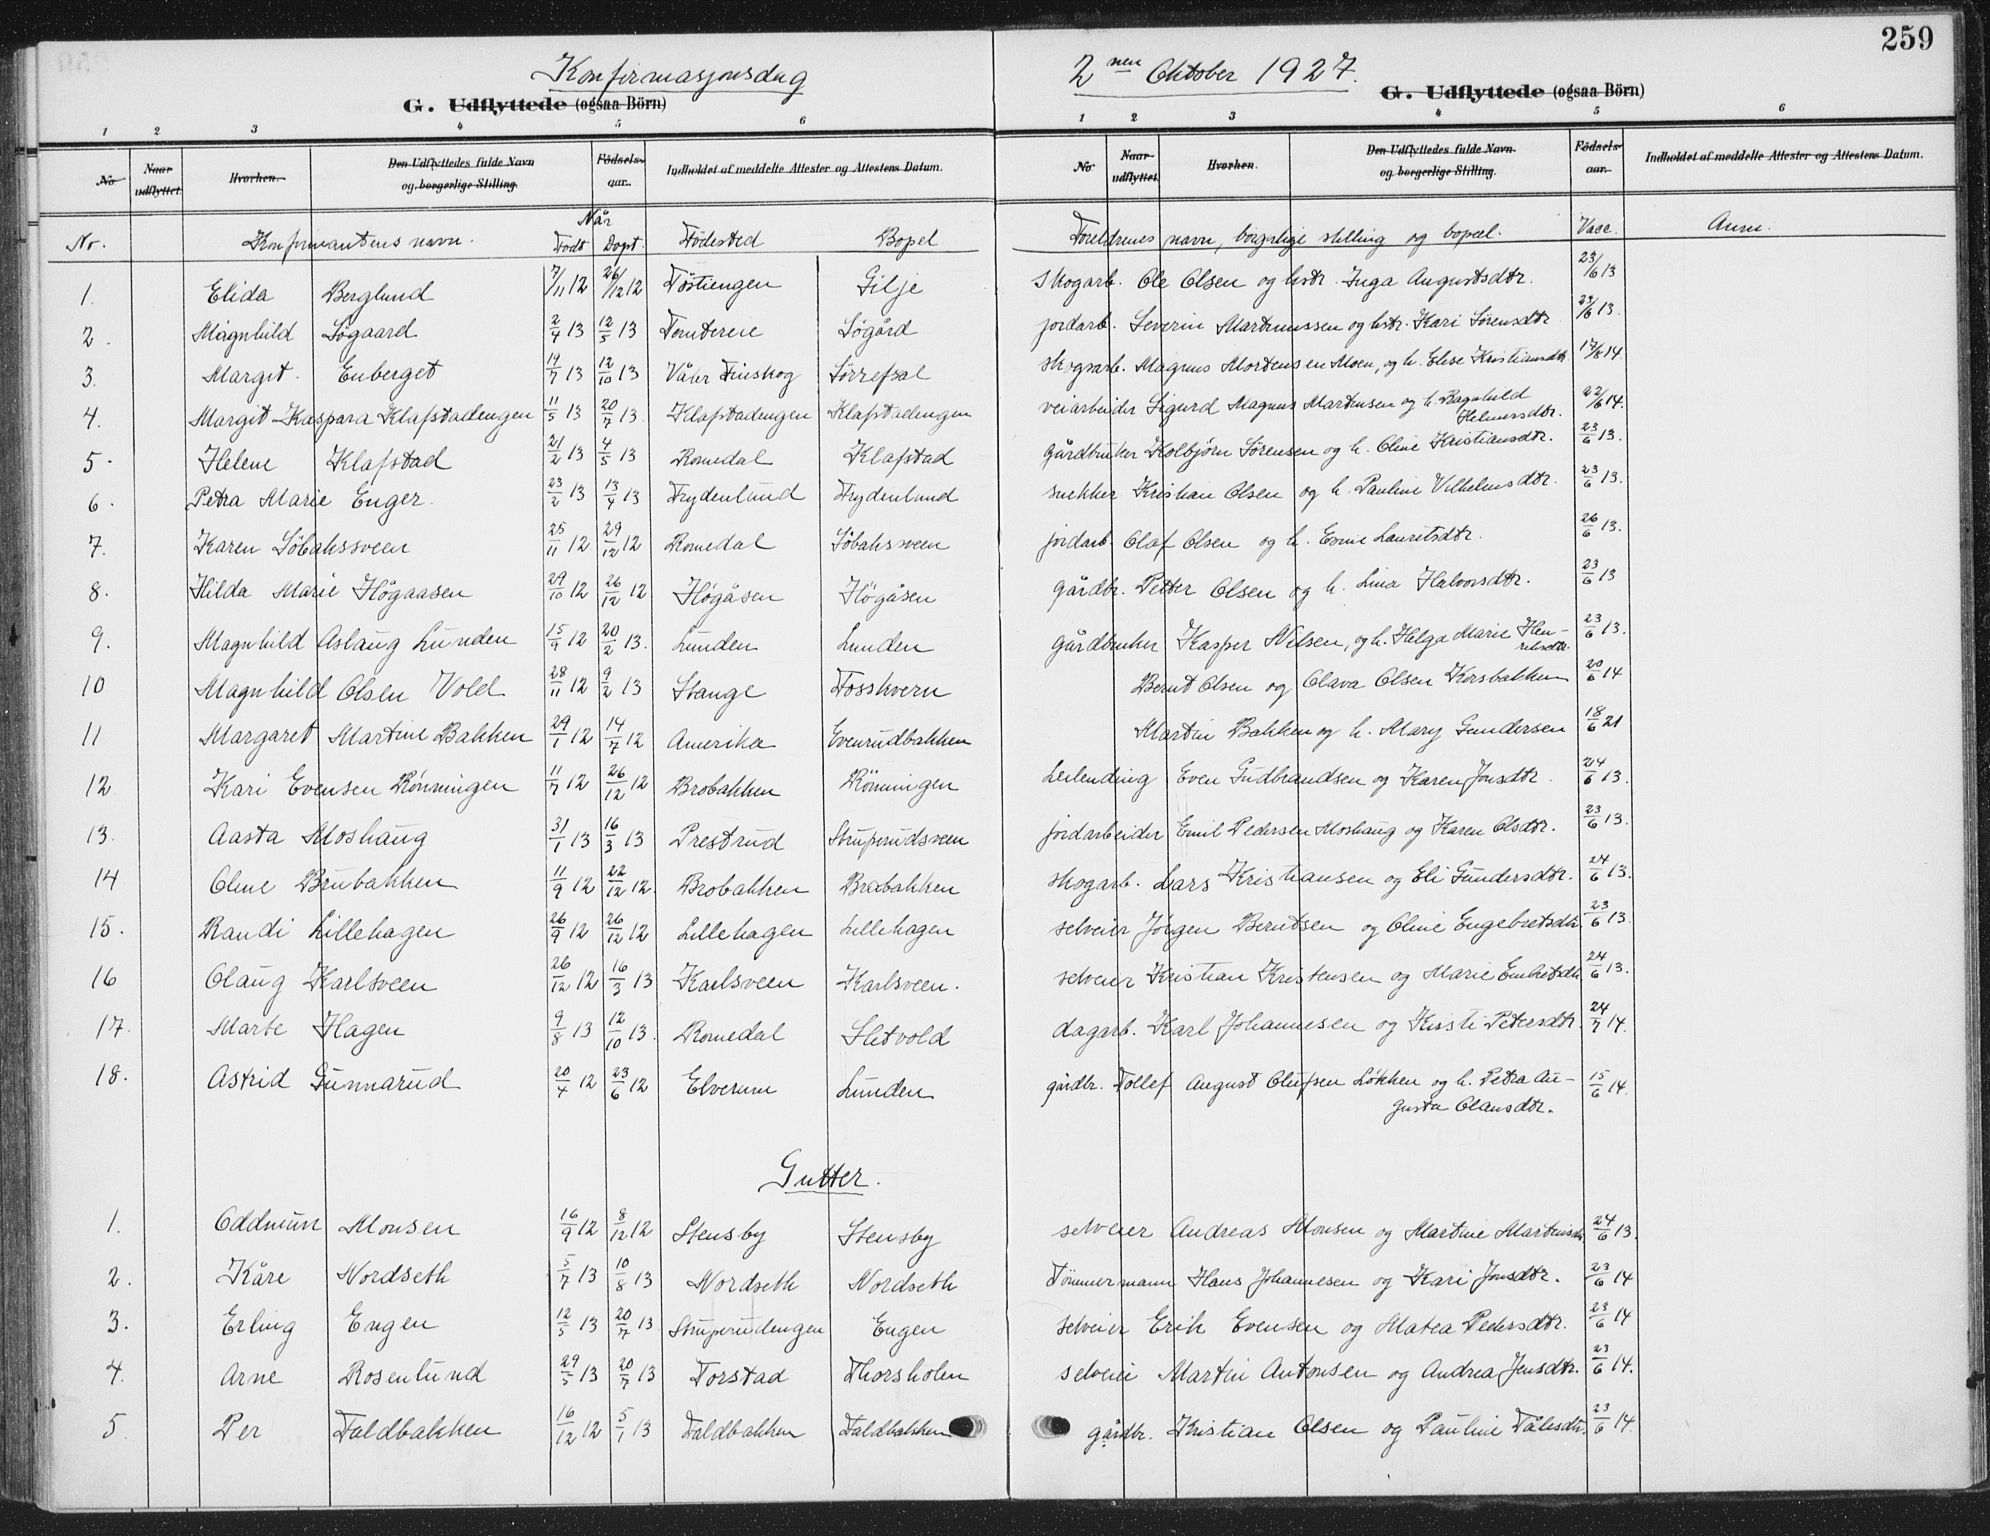 259
Konfirmasjonsdag 2 nen Oktober 1927.
G. Udflyttede (ogsaa Börn) G. Udflyttede (ogsaa Börn)
1 2 3 4 5 6 1 2 3 4 5 6
No Naar udflyttet. Hvorhen. Den Udflyttedes fulde Navn og borgerlige Stilling. Födsels-aar. Indholdet af meddelte Attester og Attestens Datum. No Naar udflyttet. Hvorhen. Den Udflyttedes fulde Navn og borgerlige Stilling. Födsels-aar. Indholdet af meddelte Attester og Attestens Datum.
Når
No. Konfirmantens navn. Födt Döpt. Födested Bopel Foreldrenes navn, borgerlige stilling og bopæl. Vacc. Anm.
1. Elida Berglund 7/11 12 26/12 12 Töstiengen Gilje Skogarb. Ole Olsen og hstr. Inga Augustsdtr. 23/6 13
2. Magnhild Søgaard 2/4 13 12/5 13 Tomtereie Søgård jordarb. Severin Martinussen og hstr. Kari Sørensdtr. 23/6 13.
3. Margit Enberget 19/7 13 12/10 13 Våler Finskog Sörrefsal skogsarb. Magnus Mortensen Moen, og h. Elise Kristiansdtr. 17/6 14.
4. Margit Kaspara Klafstadengen 11/5 13 20/7 13. Klafstadengen Klafstadengen veiarbeider Sigurd Magnus Martinsen og h. Ragnhild Helmersdtr. 22/6 14.
5. Helene Klafstad 21/2 13 4/5 13 Romedal Klafstad gårdbruker Kolbjørn Sørensen og h. Oline Kristiansdtr. 23/6 13.
6. Petra Marie Enger. 23/2 13 13/4 13 Frydenlund Frydenlund snekker Kristian Olsen og h. Pauline Vilhelmsdtr. 23/6 13.
7. Karen Söbakksveen 25/11 12 29/12 12 Romedal Söbaksveen jordarb. Olaf Olsen og h. Emie Lauritsdtr. 26/6 13.
8. Hilda Marie Högaasen 29/10 12 26/12 12 Högåsen Högåsen gårdbr. Petter Olsen og h. Lina Halvorsdtr. 23/6 13
9. Magnhild Aslaug Lunden 15/9 12 20/2 13. Lunden Lunden gårdbruker Kasper Nilsen, og h. Helga Marie Henriksdtr. 23/6 13.
10 Magnhild Olsen Vold 28/11 12 9/2 13 Stange Fosskvern Bernt Olsen og Olava Olsen Korsbakken 20/6 14
11 Margaret Martine Bakken 29/1 12 14/7 12 Amerika Evenrudbakken Martin Bakken og h. Mary Gundersen 18/6 21
12. Kari Evensen Rönningen 11/7 12 26/12 12 Brobakken Rönningen Leilending Even Gudbrandsen og Karen Jonsdtr. 24/6 13.
13. Aasta Moshaug 31/1 13 16/3 13 Prestrud Struperudsveen jordarbeider Emil Pedersen Moshaug og Karen Olsdtr. 23/6 13.
14 Oline Brubakken 11/9 12 22/12 12. Brobakken Brobakken skogarb. Lars Kristiansen og Eli Gundersdtr. 24/6 13.
15. Randi Lillehagen 26/9 12 26/12 12 Lillehagen Lillehagen selveier Jörgen Berntsen og Oline Engebretsdtr. 23/6 13.
16 Olaug Karlsveen 26/12 12 16/3 13 Karlsveen Karlsveen. selveier Kristian Kristensen og Marie Embretsdtr. 24/6 13.
17. Marte Hagen 9/8 13 12/10 13. Romedal Slitvold dagarb. Karl Johannesen og Kirsti Petersdtr. 24/7 14.
18. Astrid Gunnarud 20/4 12 23/6 12 Elverum Lunden gårdbr. Tollef August Olufsen Løkken og h. Petra Augusta Olausdtr. 15/6 14.
Gutter.
1. Oddmun Monsen 16/9 12 8/12 12 Stensby Stensby selveier Andreas Monsen og Martine Martinsdtr. 24/6 13.
2. Kåre Nordseth 5/7 13 10/8 13 Nordseth Nordseth Tömmermann Hans Johannesen og Kari Jonsdtr. 23/6 14
3. Erling Engen 12/5 13 20/7 13 Struperudengen Engen selveier Erik Evensen og Matea Pedersdtr. 23/6 14
4. Arne Rosenlund 29/5 13 20/7 13 Torstad Thorsholen selveier Martin Antonsen og Andrea Jensdtr. 23/6 14.
5. Per Faldbakken 16/12 12 5/1 13 Faldbakken Faldbakken gårdbr. Kristian Olsen og Pauline Pålsdtr. 23/6 14.